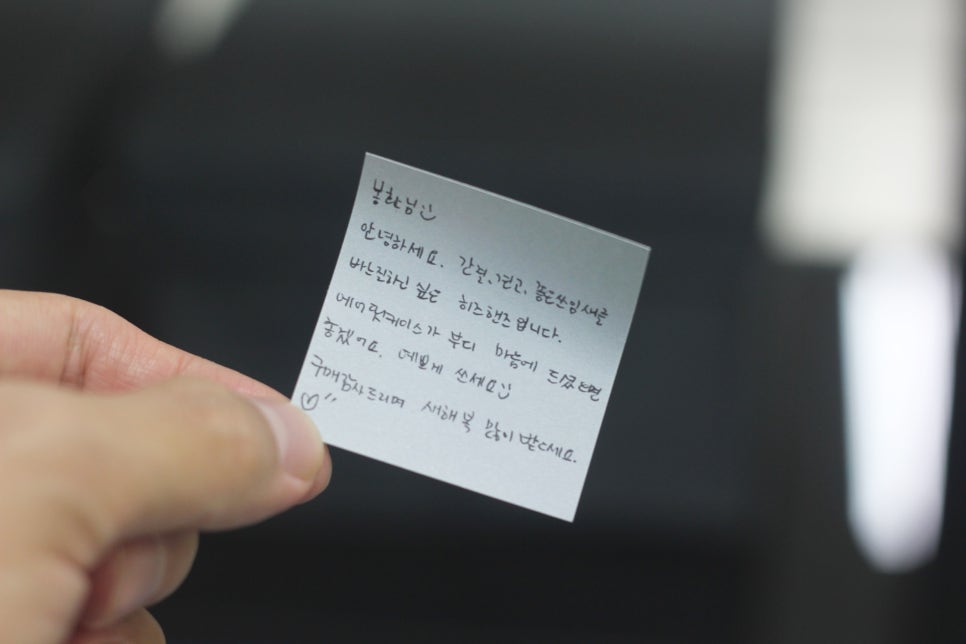 봉학님:)
안녕하세요. 간편,견고, 좋은쓰임새를
바느질하고 싶은 히즈핸즈입니다.
에어팟케이스가 부디 마음에 드셨으면
좋겠어요. 예쁘게 쓰세요:)
구매감사드리며 새해 복 많이 받으세요.
♡"